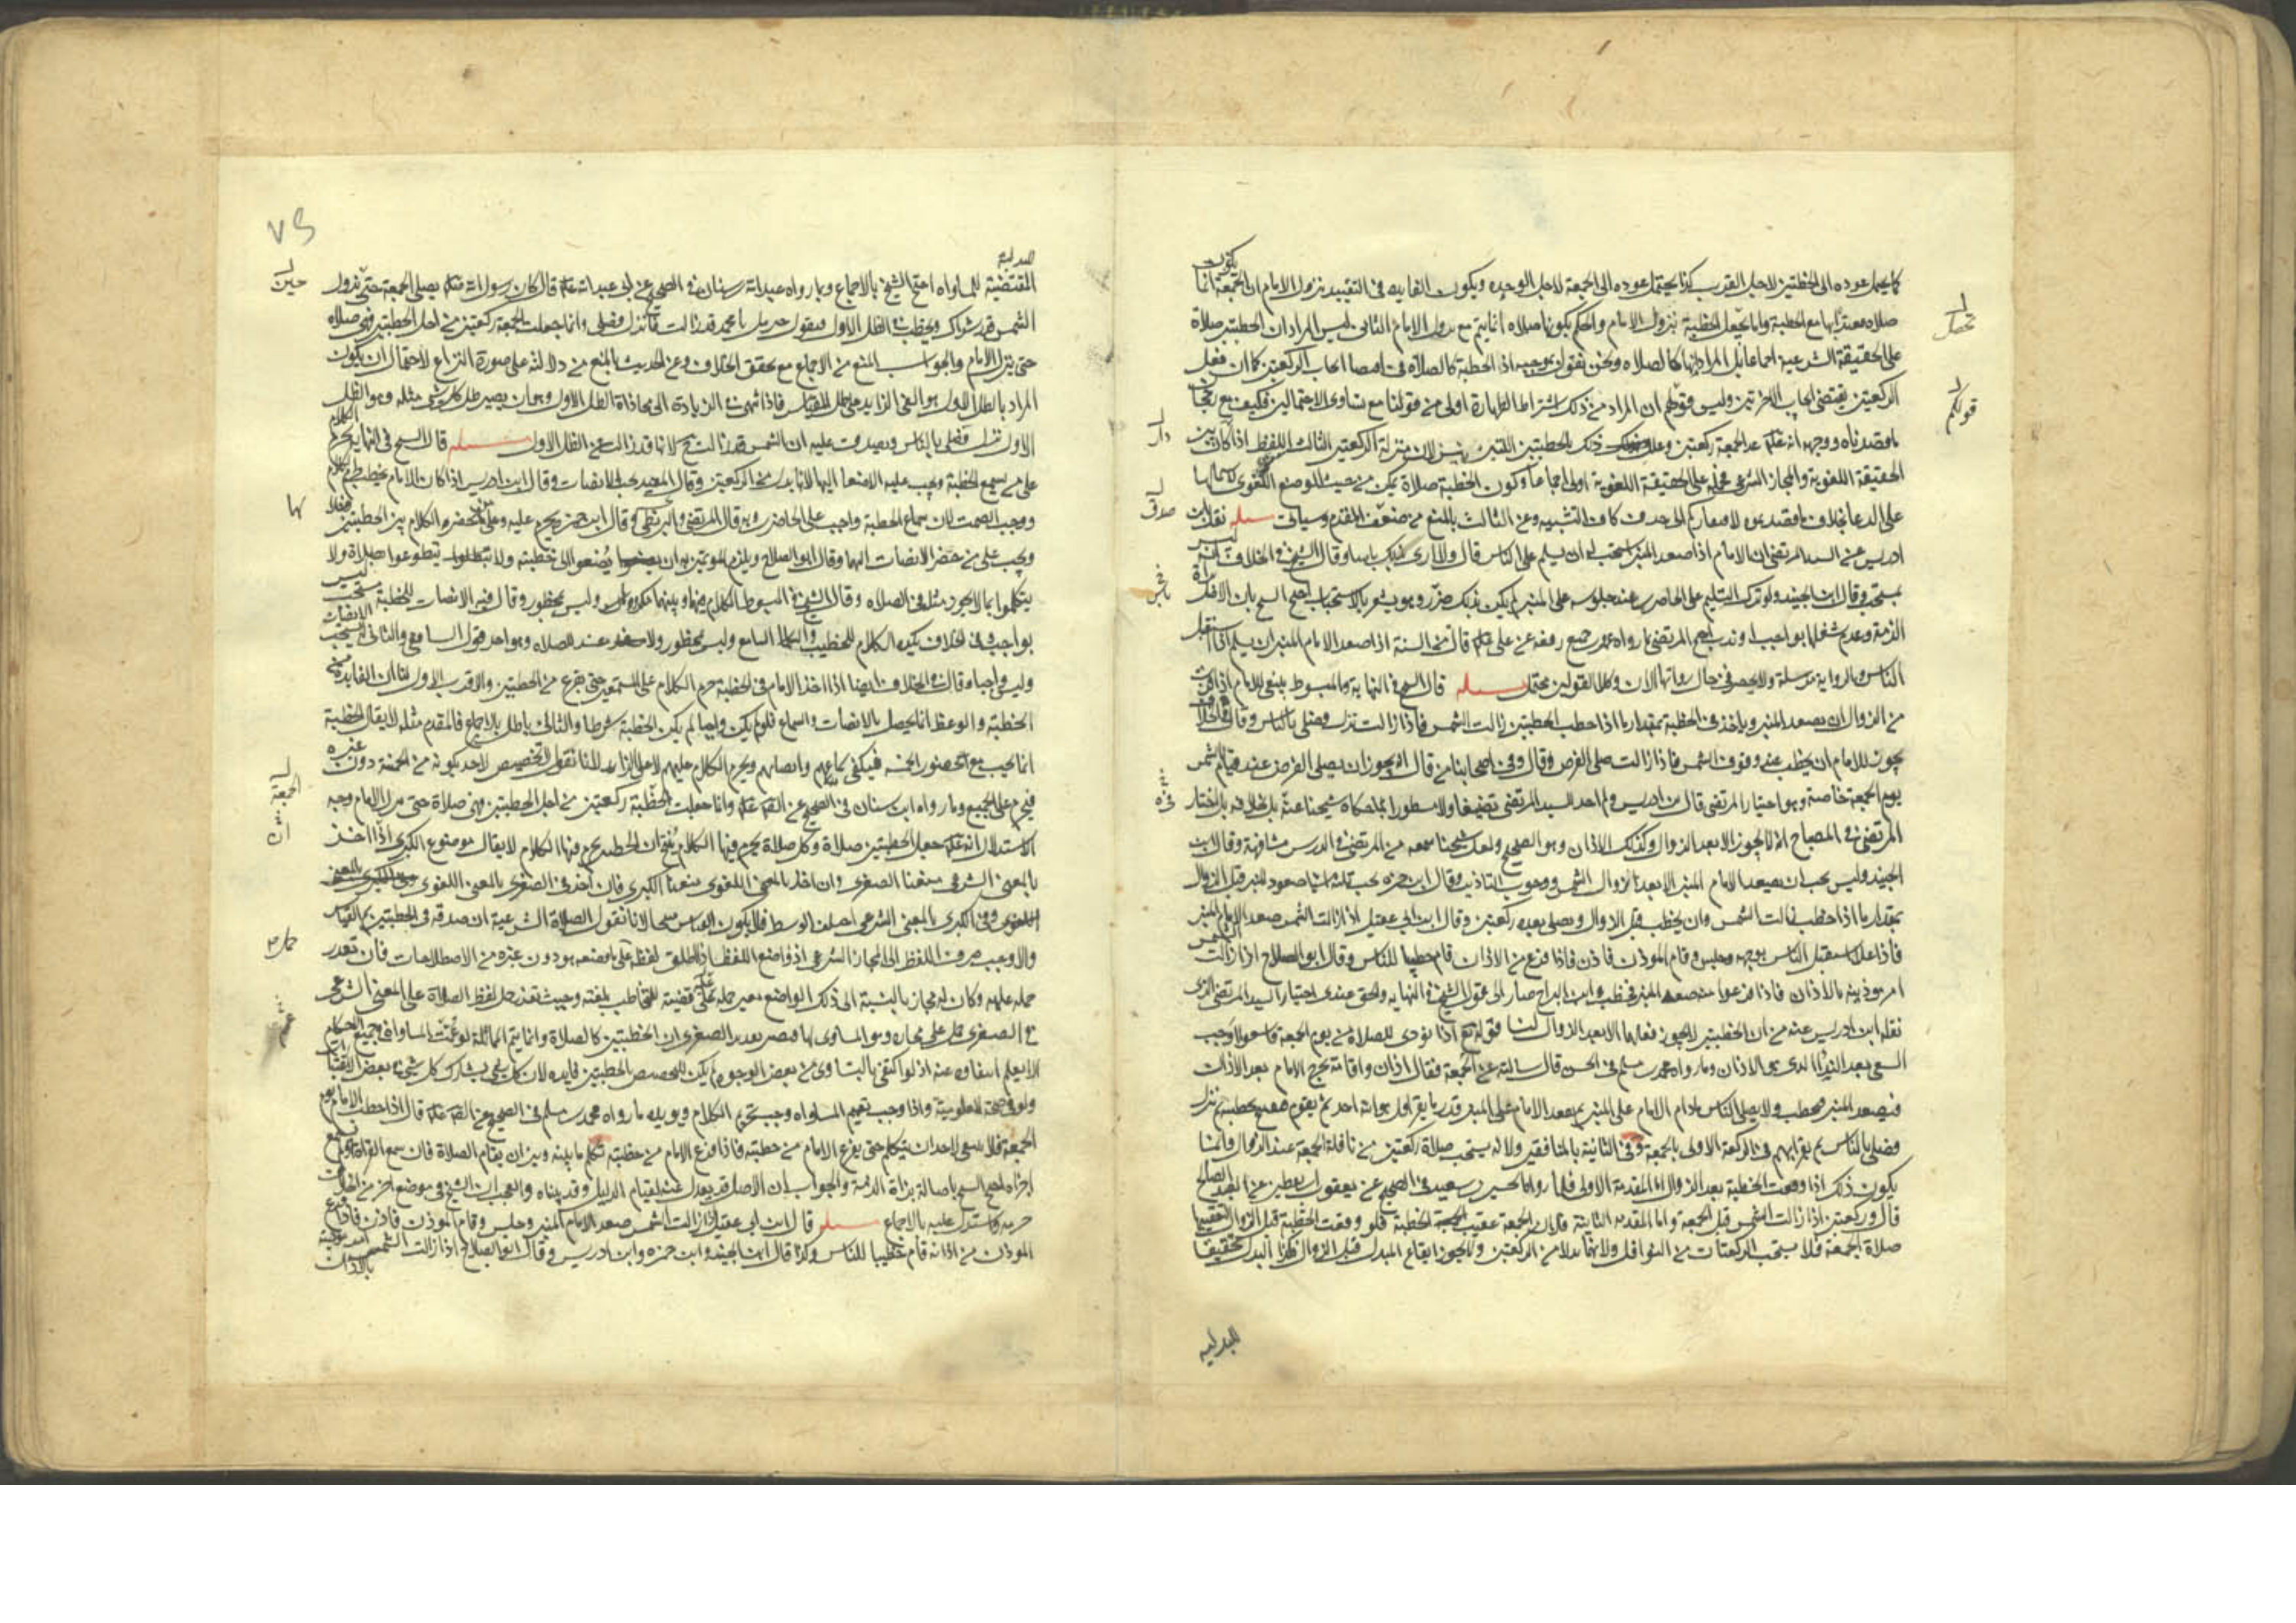 كما يحتمل عوده الى الخطبتين لاجل القرب كذا يحتمل عوده الى الجمعة لاجل الوحده ويكون الفايده فى التقييد بنزول الامام ان الجمعة انما يكون
صلاه معتدا بها مع الخطبة وانما يحصل الخطبة بنزول الامام والحكم بكونها صلاه انما يتم مع نزول الامام الثانى ليس المراد ان الخطبتين صلاة
على الحقيقة الشرعية اجماعا بل المراد انها كالصلاه ونحن نقول بموجبه اذ الخطبة كالصلاه فى اقتضا ايجاب الركعتين كما ان فعل
الركعتين يقتضى ايجاب الاخرتين وليس قولهم ان المراد من ذلك اشتراط الطهارة اولى من قولنا مع تساوى الاحتمالين فكيف مع رجحان
ما قصدناه ووجهه انه عد الجمعة ركعتين وعلل ذلك بالخطبتين اللتين ينزلان منزلة الركعتين الثالث اللفظ اذا كان بين
الحقيقة اللغوية والمجاز الشرعى فحمله على الحقيقة اللغوية اولى اجماعا وكون الخطبة صلاة يمكن من حيث الوضع اللغوى لاشتمالها
على الدعا بخلاف ما قصدتموه لافتقاركم الى حذف كاف التشبيه وعن الثالث بالمنع من ضعف المقدم وسياتى مسله نقل ابن
ادريس عن السيد المرتضى ان الامام اذا صعد المنبر استحب له ان يسلم على الناس قال ولا ارى بذلك باسا وقال الشيخ فى الخلاف انه ليس
بمستحب وقال ابن الجنيد ولو ترك التسليم على الحاضرين عند جلوسه على المنبر لم يكن بذلك ضرر وهو يشعر بالاستحباب احتج الشيخ بان الاصل براة
الذمة وعدم شغلها بواجب او ندب احتج المرتضى بما رواه عمرو بن جميع رفعه عن على قال من السنة اذا صعد الامام المنبر ان يسلم اذا استقبل
الناس والرواية مرسلة ولا يحضرنى حال رواتها الان وكلا القولين محتمل مسله قال الشيخ فى النهاية والمبسوط ينبغى للامام اذا قرب
من الزوال ان يصعد المنبر وياخذ فى الخطبة بمقدار ما اذا خطب الخطبتين زالت الشمس فاذا زالت نزل فصلى بالناس وقال فى الخلاف
يجوز للامام ان يخطب عند وقوف الشمس فاذا زالت صلى الفرض وقال وفى اصحابنا من قال انه يجوز ان يصلى الفرض عند قيام الشمس
يوم الجمعة خاصة وهو اختيار المرتضى قال ابن ادريس ولم اجد للسيد المرتضى تصنيفا ولا مسطورا بما حكاه شيخنا عنه بل بخلافه بل اختار
المرتضى فى المصباح انه لا يجوز الا بعد الزوال وكذلك الاذان وهو الصحيح ولعل شيخنا سمعه من المرتضى فى الدرس مشافهة وقال ابن
الجنيد وليس يجب ان يصعد الامام المنبر الا بعد زوال الشمس ووجوب التاذين وقال ابن حمزه يجب ثلثة اشيا صعود المنبر قبل الزوال
بمقدار ما اذا خطب زالت الشمس وان يخطب قبل الزوال ويصلى بعده ركعتين وقال ابن ابى عقيل اذا زالت الشمس صعد الامام المنبر
فاذا علا استقبل الناس بوجهه وجلس وقام الموذن فاذن فاذا فرغ من الاذان قام خطيبا للناس وقال ابو الصلاح اذا زالت الشمس
امر موذنيه بالاذان فاذا فرغوا منه صعد المنبر فخطب وابن البراج صار الى قول الشيخ فى النهايه والحق عندى اختيار السيد المرتضى الذى
نقله ابن ادريس عنه من ان الخطبتين لا يجوز فعلهما الا بعد الزوال لنا قوله تع اذا نودى للصلاة من يوم الجمعة فاسعوا اوجب
السعى بعد الندا الذى هو الاذان وما رواه محمد بن مسلم فى الحسن قال سالته عن الجمعة فقال اذان واقامة يخرج الامام بعد الاذان
فيصعد المنبر فيخطب ولا يصلى الناس ما دام الامام على المنبر ثم يقعد الامام على المنبر قدر ما يقرا قل هو الله احد ثم يقوم فيفتتح خطبته ثم ينزل
فيصلى بالناس ثم يقرا بهم فى الركعة الاولى بالجمعة وفى الثانية بالمنافقين ولانه يستحب صلاة ركعتين من نافلة الجمعة عند الزوال وانما
يكون ذلك اذا وقعت الخطبة بعد الزوال اما المقدمة الاولى فلما رواه الحسين بن سعيد فى الصحيح عن يعقوب بن يقطين عن العبد الصالح
قال وركعتين اذا زالت الشمس قبل الجمعة واما المقدمه الثانية فلان الجمعة عقيب الخطبة فلو وقعت الخطبة قبل الزوال تبعتها
صلاة الجمعة فلا يستحب الركعتان من النوافل ولانهما بدلا من الركعتين ولا يجوز ايقاع المبدل قبل الزوال فكذا البدل تحقيقا
للبدليه
للبدلية
المقتضية للمساواه احتج الشيخ بالاجماع وبما رواه عبد الله بن سنان فى الصحيح عن ابى عبد الله قال كان رسول الله يصلى الجمعة حتى تزول
الشمس قدر شراك ويخطب فى الظل الاول فيقول جبريل يا محمد قد زالت فانزل فصلى وانما جعلت الجمعة ركعتين من اجل الخطبتين فهى صلاه
حتى ينزل الامام والجواب المنع من الاجماع مع تحقق الخلاف وعن الحديث بالمنع من دلالته على صورة النزاع لاحتمال ان يكون
المراد بالظل الاول هو الفى الزايد على ظل المقياس فاذا انتهى فى الزيادة الى محاذاة الظل الاول وهو ان يصير ظل كل شى مثله وهو الظل
الاول نزل فصلى بالناس ويصدق عليه ان الشمس قد زالت ح لانها قد زالت عن الظل الاول مسله قال الشيخ فى النهاية يحرم الكلام
على من يسمع الخطبة ويجب عليه الاصغا اليها لانها بدل من الركعتين وقال المفيد يجب الانصات وقال ابن ادريس اذا كان الامام يخطب حرم الكلام
ووجب الصمت لان سماع الخطبة واجب على الحاضر وبه قال المرتضى والبزنطى وقال ابن حمزه يحرم عليه وعلى من حضره الكلام بين الخطبتين
ويجب على من حضر الانصات اليهما وقال ابو الصلاح ويلزم الموتمين به ان يصغوا الى خطبته ولا يتطوعوا بصلاة ولا
يتكلموا بما لا يجوز مثله فى الصلاه وقال الشيخ فى المبسوط الكلام فيهما وبينهما مكروه وليس بمحظور وقال فيه الانصات للخطبة مستحب ليس
بواجب وفى الخلاف يكره الكلام للخطيب والسامع وليس بمحظور ولا يفسد الصلاه وهو احد قولى الشافعى والثانى انه يستحب الانصات
وليس واجبا وقال فى الخلاف ايضا اذا اخذ الامام فى الخطبة حرم الكلام على المستمعين حتى يفرغ من الخطبتين والاقرب الاول لنا ان الفايده من
الخطبة والوعظ انما يحصل بالانصات والسماع فلو لم يكن واجبا لم يكن الخطبة شرطا والثانى باطل بالاجماع فالمقدم مثله لا يقال الخطبة
انما يجب مع حضور الخمسه فيكفى سماعهم وانصاتهم ويحرم الكلام عليهم لا على الزايد لانا نقول لا تخصيص لاحد بكونه من الخمسة دون غيره
فيحرم على الجميع وما رواه ابن سنان فى الصحيح عن الص وانما جعلت الخطبة ركعتين من اجل الخطبتين فهى صلاة حتى ينزل الامام وجه
الاستدلال انه جعل الخطبتين صلاة وكل صلاة يحرم فيها الكلام ينتج ان الخطبه يحرم فيها الكلام لا يقال موضوع الكبرى اذا اخذ
بالمعنى الشرعى منعنا الصغرى وان اخذ بالمعنى اللغوى منعنا الكبرى فان اخذ فى الصغرى بالمعنى اللغوى
وفى الكبرى بالمعنى الشرعى اختلف الوسط فلا يكون القياس منتجا لانا نقول الصلاة الشرعية ان صدقت فى الخطبتين تم القياس
والا وجب صرف اللفظ الى المجاز الشرعى اذ واضع اللفظ اذا اطلق لفظه على ما وضعه هو دون غيره من الاصطلاحات فان تعذر
حمله عليه وكان له مجاز بالنسبة الى ذلك الواضع تعين حمله عليه قضية للمخاطب بلغته وحيث تعذر حمل لفظ الصلاة على المعنى الشرعى
فى الصغرى حمل على مجازه وهو المساوى لها فيصير تقدير الصغرى ان الخطبتين كالصلاة وانما يتم المماثلة لو عمت المساواه جميع الاحكام
الا ما يعلم انتفاوه عنه اذ لو اكتفى بالتساوى من بعض الوجوه لم يكن لتخصيص الخطبتين فايده لان كل شى يشارك كل شى فى بعض الاعتبارات
ولو فى صحة المعلومية واذا وجب تعميم المساواه وجب تحريم الكلام ويويده ما رواه محمد بن مسلم فى الصحيح عن الص قال اذا خطب الامام يوم
الجمعة فلا ينبغى لاحد ان يتكلم حتى يفرغ الامام من خطبته فاذا فرغ الامام من خطبته تكلم ما بينه وبين ان يقام الصلاة فان سمع القراة او لم يسمع
اجزاه احتج الشيخ باصالة براة الذمة والجواب ان الاصل قد يعدل عنه لقيام الدليل وقد بيناه والعجب ان الشيخ فى موضع اخر من الخلاف
حرمه واستدل عليه بالاجماع مسله قال ابن ابى عقيل اذا زالت الشمس صعد الامام المنبر وجلس وقام الموذن فاذن فاذا فرغ
الموذن من اذانه قام خطيبا للناس وكذا قال ابن الجنيد وابن حمزه وابن ادريس وقال ابو الصلاح اذا زالت الشمس امر موذنيه
بالاذان